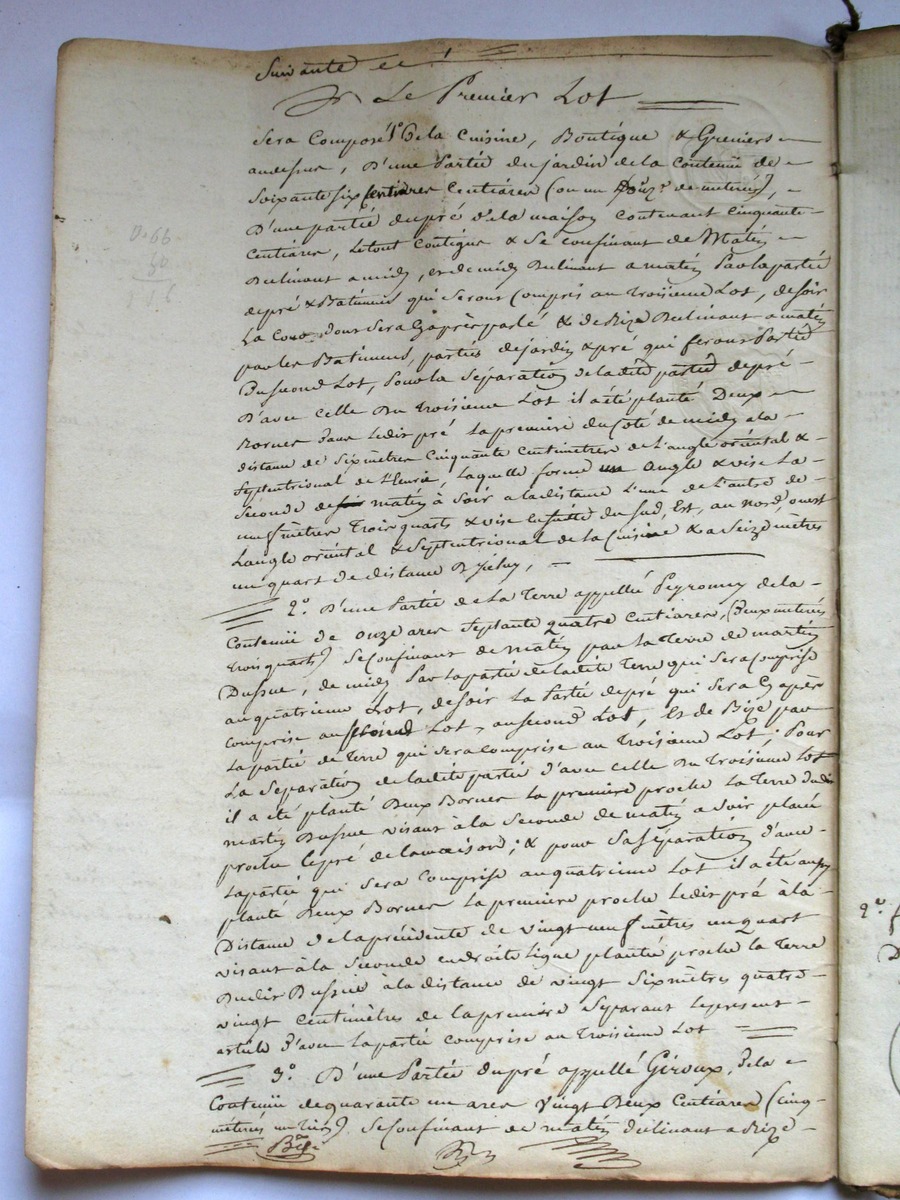 Suivante et !
Le Premier Lot
Sera Composé 1° De la Cuisine, Boutique & Greniers
audessus, D'une Partie du jardin de la contenue de
Soixante six Centiares (ou un de meterée),
D'une partie du pré de la maison contenant cinquante
Centiares, le tout contigue & Se confinant de Matin
Declinant a midy, et de midy Declinant a matin Par la partie
de pré & Batiment qui seront Compris au troisieme Lot, de soir
La Cour dont Sera Cy après parlé & de Bize Declinant a matin
par les Batiments, parties de jardin & pré qui feront Partie
Du second Lot, Pour la Séparation de ladite partie de pré
D'avec celle Du Troisieme Lot il a été planté Deux
Bornes dans ledit pré La premiere du Coté de midy a la
distance de Six mètres Cinquante Centimetres de l'angle oriental &
Septentrional de l'Ecurie, Laquelle forme angle & vise La
Seconde de matin à Soir a la distance l'une de l'autre de
neuf mètres Trois quarts & vise du Sud, Est, au Nord, ouest
L'angle oriental & Septentrional de la Cuisine & a Seize mètres
un quart de distance D'iceluy,
2.° D'une Partie de La Terre appellée Peyronney de la
Contenue de onze ares Septante quatre Centiares, (Deux meterées
trois quarts) Se Confinant de matin par la Terre de martin
Dussue, de midy Par la partie de ladite Terre qui Sera comprise
au quatrieme Lot, de soir La Partie de pré qui Sera Cy après
comprise au Lot, au second Lot, Et de Bize par
La partie de Terre qui sera comprise au Troisieme Lot; Pour
La Separation de ladite partie d'avec celle Du Troisieme Lot
il a été planté Deux Bornes La premiere proche La Terre dudit
martin Dussue visant à la Seconde de matin a Soir placée
proche le pré de la maison; & pour Sa séparation d'avec
La partie qui Sera Comprise au quatrieme Lot il a été aussy
planté Deux Bornes La premiere proche ledit pré à la
Distance de la précédente de vingt neuf mètres un quart
visant à la Seconde en droite ligne plantée proche la Terre
Dudit Dussue à la distance de vingt Six mètres quatre
vingt Centimètres de la premiere Separant le present
article d'avec La partie comprise au Troisieme Lot
3.° D'une Partie du pré appellé Giroux, de la
Contenue de quarante un ares vingt Deux Centiares (Cinq
meterées un tiers) Se Confinant de matin declinant a Bize
0.66
50
1 1 6
2.°